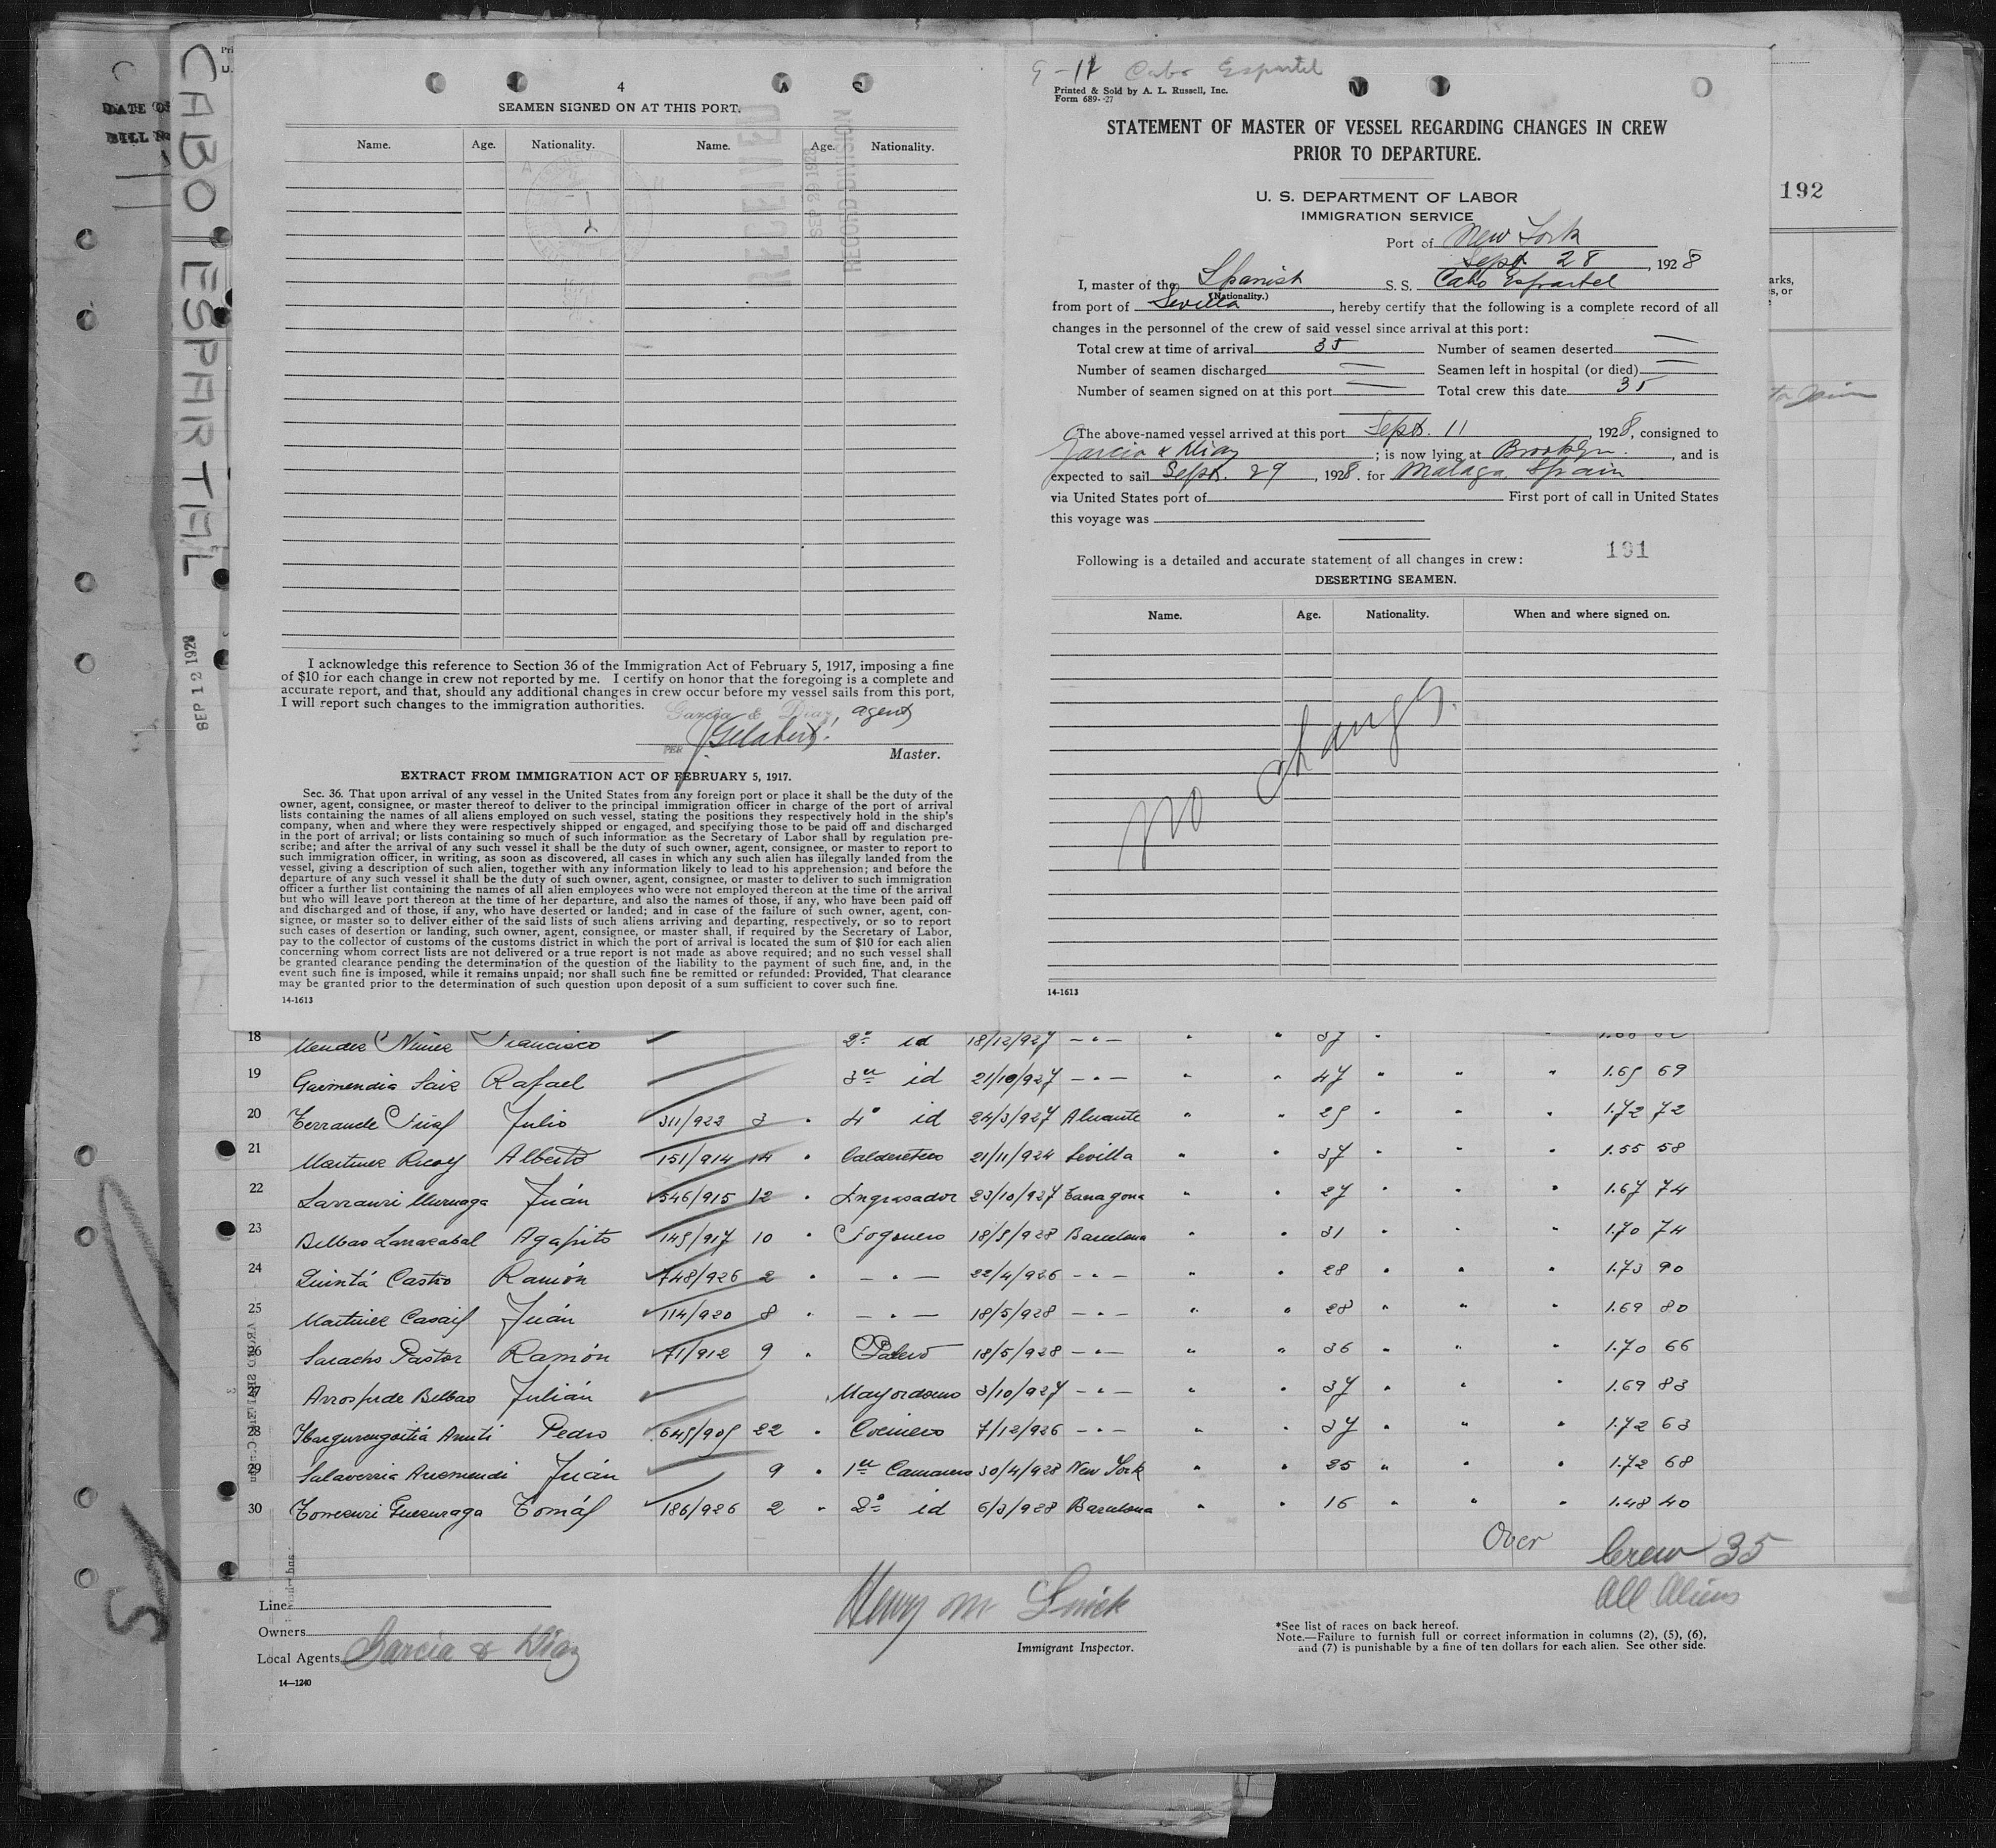 CABO ESPARTEL
SEP 12 1928
DATE OF
BILL No
4
SEAMEN SIGNED ON AT THIS PORT.
Name. Age. Nationality. Name. Age. Nationality.
RECEIVED
SEP 29 1928
RECORD DIVISION
I acknowledge this reference to Section 36 of the Immigration Act of February 5, 1917, imposing a fine
of $10 for each change in crew not reported by me. I certify on honor that the foregoing is a complete and
accurate report, and that, should any additional changes in crew occur before my vessel sails from this port,
I will report such changes to the immigration authorities.
Garcia & Diaz, agents
PER
Master.
EXTRACT FROM IMMIGRATION ACT OF FEBRUARY 5, 1917.
Sec. 36. That upon arrival of any vessel in the United States from any foreign port or place it shall be the duty of the
owner, agent, consignee, or master thereof to deliver to the principal immigration officer in charge of the port of arrival
lists containing the names of all aliens employed on such vessel, stating the positions they respectively hold in the ship's
company, when and where they were respectively shipped or engaged, and specifying those to be paid off and discharged
in the port of arrival; or lists containing so much of such information as the Secretary of Labor shall by regulation pre-
scribe; and after the arrival of any such vessel it shall be the duty of such owner, agent, consignee, or master to report to
such immigration officer, in writing, as soon as discovered, all cases in which any such alien has illegally landed from the
vessel, giving a description of such alien, together with any information likely to lead to his apprehension; and before the
departure of any such vessel it shall be the duty of such owner, agent, consignee, or master to deliver to such immigration
officer a further list containing the names of all alien employees who were not employed thereon at the time of the arrival
but who will leave port thereon at the time of her departure, and also the names of those, if any, who have been paid off
and discharged and of those, if any, who have deserted or landed; and in case of the failure of such owner, agent, con-
signee, or master so to deliver either of the said lists of such aliens arriving and departing, respectively, or so to report
such cases of desertion or landing, such owner, agent, consignee, or master shall, if required by the Secretary of Labor,
pay to the collector of customs of the customs district in which the port of arrival is located the sum of $10 for each alien
concerning whom correct lists are not delivered or a true report is not made as above required; and no such vessel shall
be granted clearance pending the determination of the question of the liability to the payment of such fine, and, in the
event such fine is imposed, while it remains unpaid; nor shall such fine be remitted or refunded: Provided, That clearance
may be granted prior to the determination of such question upon deposit of a sum sufficient to cover such fine.
14-1613
9-11 Cabo Espartel
Printed & Sold by A. L. Russell, Inc.
Form 689--27
STATEMENT OF MASTER OF VESSEL REGARDING CHANGES IN CREW
PRIOR TO DEPARTURE.
U. S. DEPARTMENT OF LABOR
IMMIGRATION SERVICE
Port of New York
Sept 28, 1928
I, master of the Spanish S. S. Cabo Espartel
(Nationality.)
from port of Sevilla, hereby certify that the following is a complete record of all
changes in the personnel of the crew of said vessel since arrival at this port:
Total crew at time of arrival 35 Number of seamen deserted —
Number of seamen discharged — Seamen left in hospital (or died) —
Number of seamen signed on at this port — Total crew this date 35
The above-named vessel arrived at this port Sept. 11, 1928, consigned to
Garcia & Diaz; is now lying at Brooklyn., and is
expected to sail Sept. 29, 1928. for Malaga, Spain
via United States port of First port of call in United States
this voyage was
191
Following is a detailed and accurate statement of all changes in crew:
DESERTING SEAMEN.
Name. Age. Nationality. When and where signed on.
no changes.
14-1613
192
18 Mendez Nuñez Francisco 2º id 18/12/927 — " — " " 37 "
19 Garmendia Saiz Rafael 3er id 21/10/927 — " — " " 47 " " " 1.65 69
20 Julio 311/922 3 " 4º id 24/3/927 Alicante " " 29 " " " 1.72 72
21 Martinez Alberto 151/914 14 " 21/11/924 Sevilla " " 37 " " " 1.55 58
22 Larrauri Muruaga Juán 546/915 12 " Engrasador 23/10/927 Tarragona " " 27 " " " 1.67 74
23 Bilbao Larracabal Agapito 149/917 10 " Fogonero 18/5/928 Barcelona " " 31 " " " 1.70 74
24 Quintá Castro Ramón 748/926 2 " — " — 22/4/926 — " — " " 28 " " " 1.73 90
25 Martinez Juán 114/920 8 " — " — 18/5/928 — " — " " 28 " " " 1.69 80
26 Saracho Pastor Ramón 71/912 9 " Palero 18/5/928 — " — " " 36 " " " 1.70 66
27 Bilbao Julián Mayordomo 3/10/927 — " — " " 37 " " " 1.69 83
28 Pedro 649/909 22 " Cocinero 7/12/926 — " — " " 37 " " " 1.72 63
29 Salaverria Arismendi Juán 9 " 1er Camarero 30/4/928 New York " " 25 " " " 1.72 68
30 Tomás 186/926 2 " 2º id 6/3/928 Barcelona " " 16 " " " 1.48 40
Over Crew 35
All Aliens
Line
Owners
Local Agents Garcia & Diaz
14—1240
Henry M
Immigrant Inspector.
*See list of races on back hereof.
Note.—Failure to furnish full or correct information in columns (2), (5), (6),
and (7) is punishable by a fine of ten dollars for each alien. See other side.